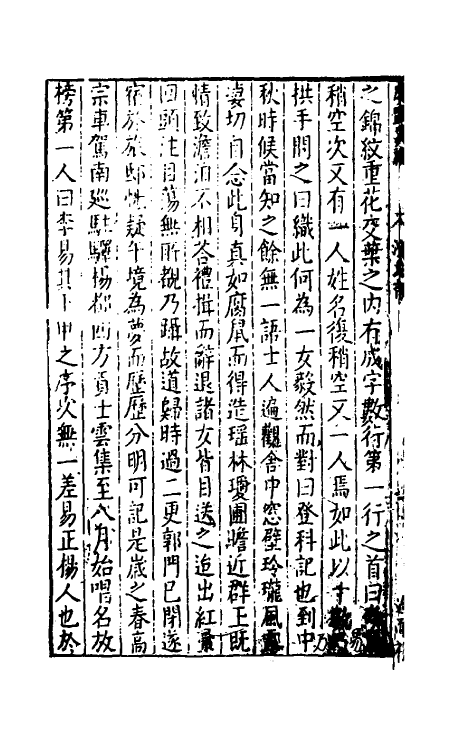 之錦紋重花交葉之內有成字數行第一行之首曰
稍空次又有一人姓名復稍空又一人焉如此以十數
拱手問之曰織此何為一女毅然而對曰登科記也到中
秋時候當知之餘無一語士人遍觀舍中窓壁玲瓏風露
淒切自念此身真如腐鼠而得造瑶林瓊圃瞻近群玉既
情致澹泊不相荅禮揖而辭退諸女皆目送之迨出紅
回頭注目蕩無所覩乃躡故道歸時過二更郭門已閉遂
宿於旅邸恍疑午境為夢而歷歷分明可記是歲之春高
宗車駕南巡駐驛楊都四方貢士雲集至八月始唱名故
榜第一人曰李易其下甲之序次無一差易正楊人也於